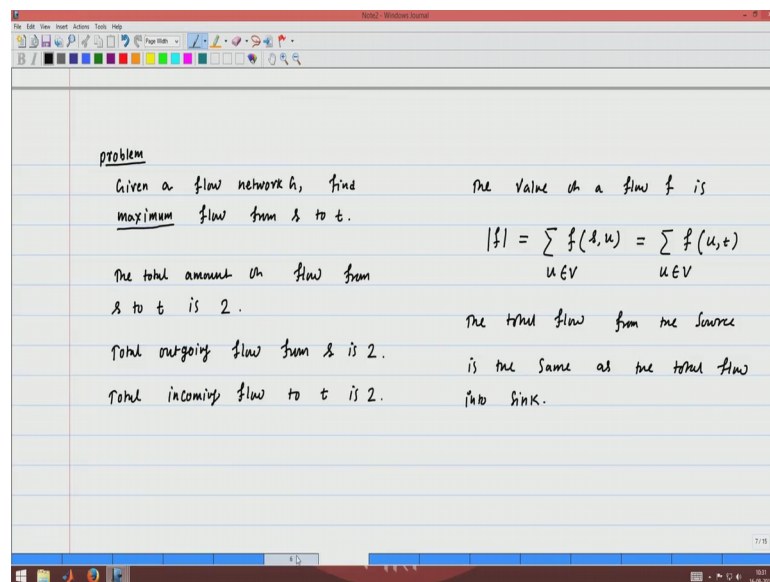 Note2 - Windows Journal
File Edit View Insert Actions Tools Help
Page Width
B I
problem
Given a flow network G, find
maximum flow from s to t.
The total amount of flow from
s to t is 2.
Total outgoing flow from s is 2.
Total incoming flow to t is 2.
The value of a flow f is
|f| = ∑ f(s,u) = ∑ f(u,t)
u∈V u∈V
The total flow from the source
is the same as the total flow
into sink.
6
7/15
10:31